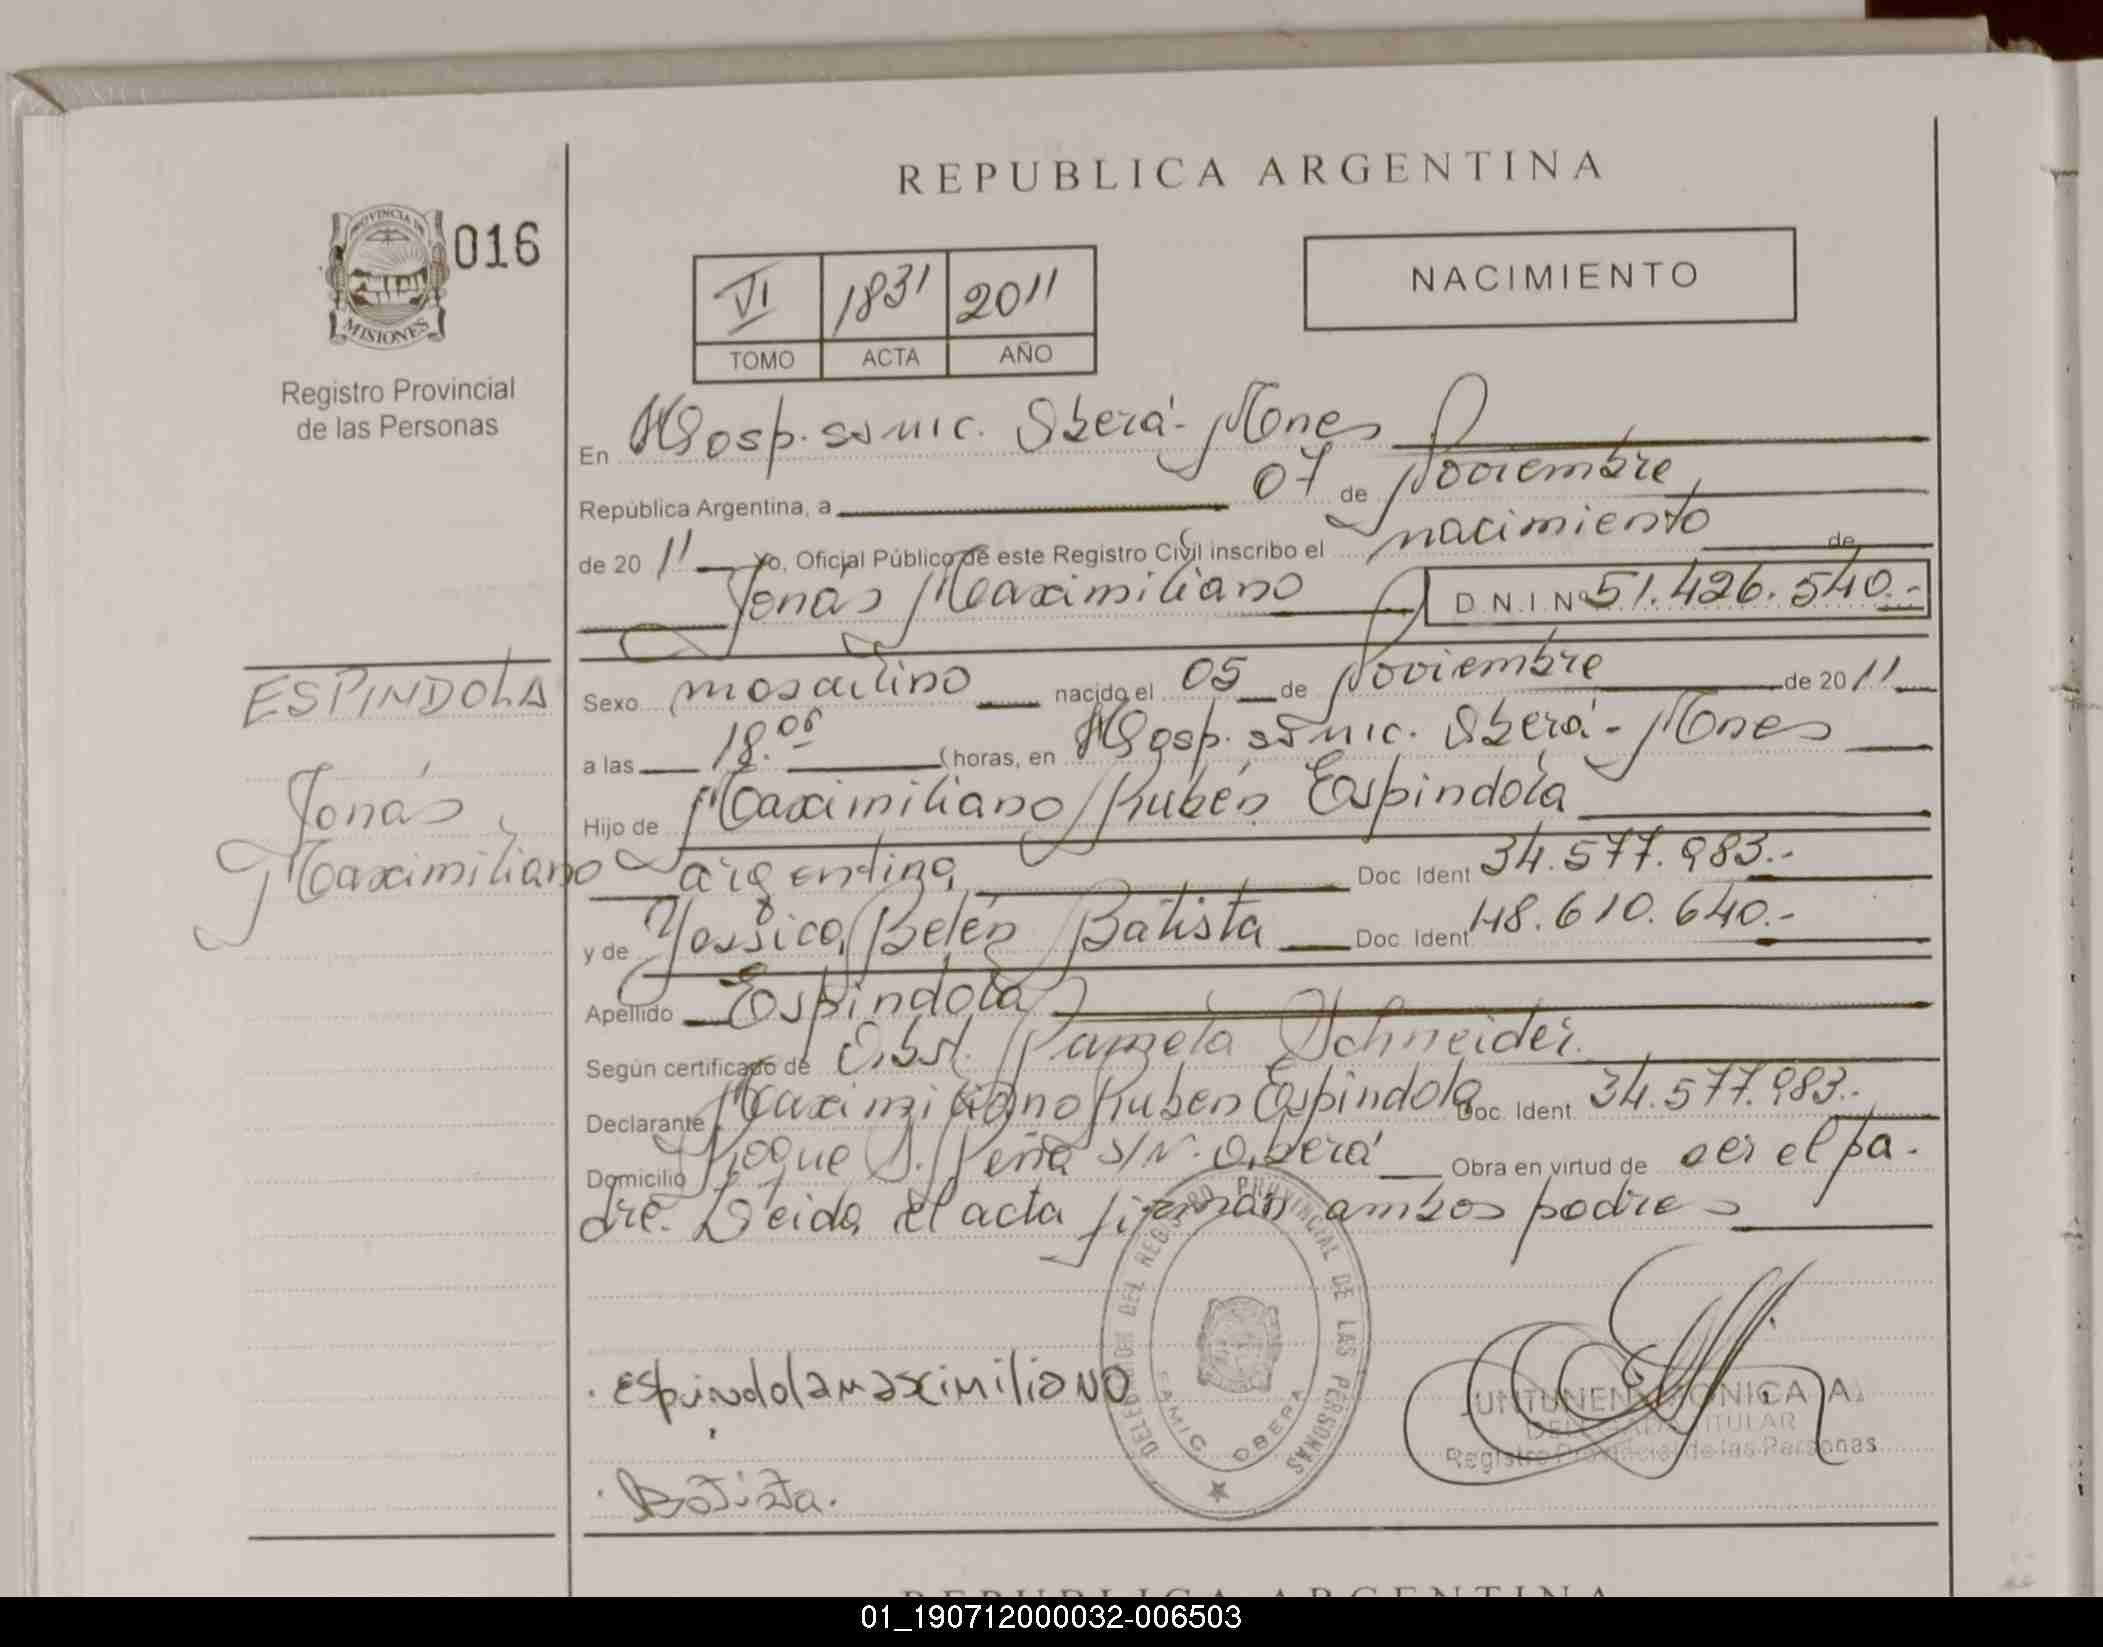 REPUBLICA ARGENTINA
PROVINCIA DE
MISIONES
016
Registro Provincial
de las Personas
VI 1831 2011
TOMO ACTA AÑO
NACIMIENTO
En Hosp. Oberá - Mnes
República Argentina, a 07 de Noviembre
de 20 11 Yo, Oficial Público de este Registro Civil inscribo el nacimiento de
Jonás Maximiliano D N I Nº 51.426.540.-
ESPINDOLA
Jonás
Maximiliano
Sexo masculino nacido el 05 de Noviembre de 20 11
a las 18.05 horas, en Hosp. Oberá - Mnes
Hijo de Maximiliano Rubén Espindola
argentina Doc. Ident 34.577.983.-
y de Yessica Belén Batista Doc. Ident 48.610.640.-
Apellido Espindola
Según certificado de Obst. Pamela Schneider.
Declarante Maximiliano Ruben Espindola Doc. Ident. 34.577.983.-
Domicilio Roque S. Peña S/N. Oberá Obra en virtud de ser el pa.
dre. Leida el acta firman ambos padres
Espindola maximiliano
Batista.
DELEGACION DEL REGISTRO PROVINCIAL DE LAS PERSONAS
SAMIC OBERA
UNTUNEN MONICA A.
DELEGADA TITULAR
Registro Provincial de las Personas
REPUBLICA ARGENTINA
01_190712000032-006503